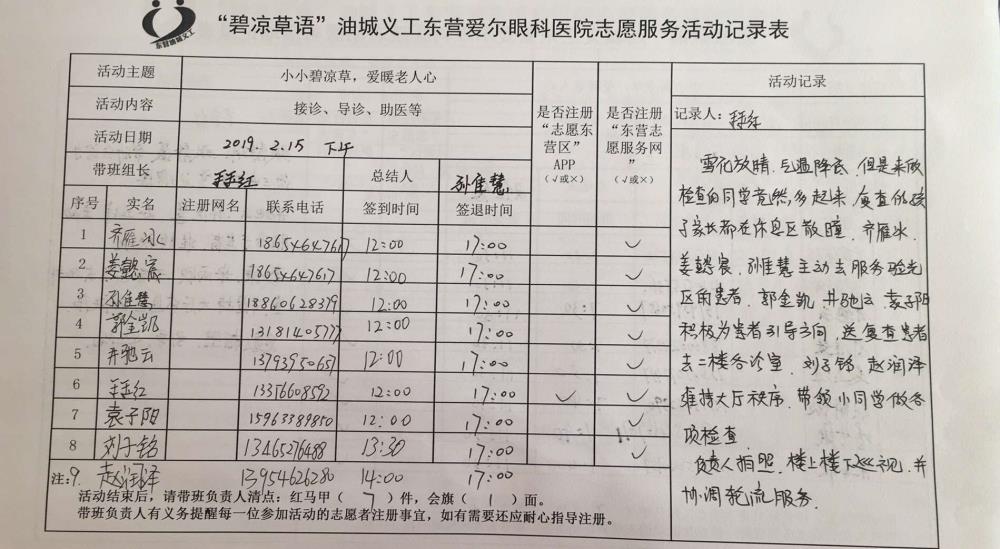 东营油城义工
“碧凉草语”油城义工东营爱尔眼科医院志愿服务活动记录表
活动主题 小小碧凉草，爱暖老人心
活动内容 接诊、导诊、助医等
活动日期 2019.2.15 下午
带班组长 王红 总结人 孙佳慧
是否注册“志愿东营区”APP（√或×）
是否注册“东营志愿服务网”（√或×）
序号 实名 注册网名 联系电话 签到时间 签退时间
1 齐雁冰 18654647617 12:00 17:00 ✓
2 姜懿宸 18654647617 12:00 17:00 ✓
3 孙佳慧 18860628379 12:00 17:00 ✓
4 郭金凯 13181405777 12:00 17:00 ✓
5 井驰云 13793950657 12:00 17:00 ✓
6 王红 13356608592 12:00 17:00 ✓ ✓
7 袁子阳 15963389850 12:00 17:00 ✓
8 刘子铭 13465276488 13:30 17:00 ✓
注:9. 赵润泽 13954626280 14:00 17:00
活动结束后，请带班负责人清点：红马甲（7）件，会旗（1）面。
带班负责人有义务提醒每一位参加活动的志愿者注册事宜，如有需要还应耐心指导注册。
活动记录
记录人：王红
雪花放晴，气温降底，但是来做
检查的同学竟然多起来，复查的孩
子家长都在休息区散瞳，齐雁冰、
姜懿宸、孙佳慧主动去服务验光
区的患者，郭金凯、井驰云、袁子阳
积极为患者引导方向，送复查患者
去二楼各诊室，刘子铭、赵润泽
维持大厅秩序，带领小同学做各
项检查。
负责人拍照，楼上楼下巡视，并
协调轮流服务。